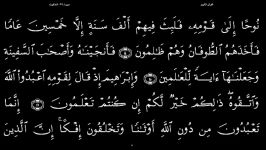 نُوحًا إِلَىٰ قَوْمِهِۦ فَلَبِثَ فِيهِمْ أَلْفَ سَنَةٍ إِلَّا خَمْسِينَ عَامًا
فَأَخَذَهُمُ ٱلطُّوفَانُ وَهُمْ ظَٰلِمُونَ ۝ فَأَنجَيْنَٰهُ وَأَصْحَٰبَ ٱلسَّفِينَةِ
وَجَعَلْنَٰهَآ ءَايَةً لِّلْعَٰلَمِينَ ۝ وَإِبْرَٰهِيمَ إِذْ قَالَ لِقَوْمِهِ ٱعْبُدُوا۟ ٱللَّهَ
وَٱتَّقُوهُ ذَٰلِكُمْ خَيْرٌ لَّكُمْ إِن كُنتُمْ تَعْلَمُونَ ۝ إِنَّمَا
تَعْبُدُونَ مِن دُونِ ٱللَّهِ أَوْثَٰنًا وَتَخْلُقُونَ إِفْكًا إِنَّ ٱلَّذِينَ